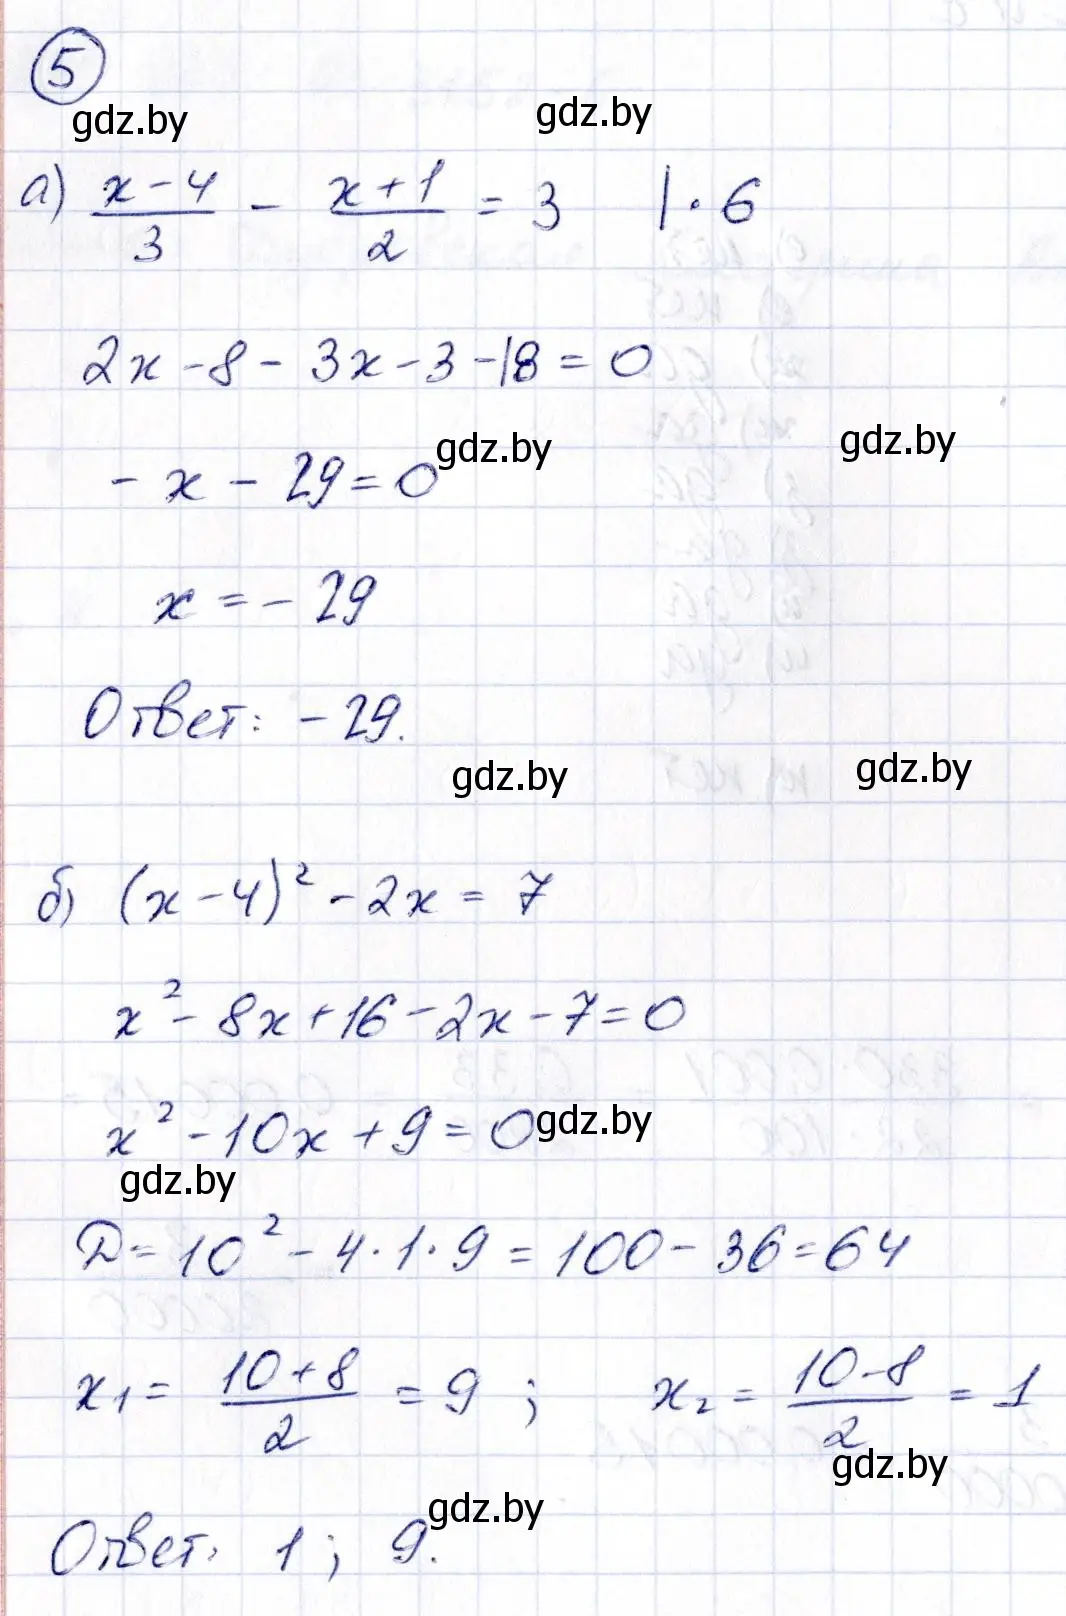 5
gdz.by gdz.by
а) (x-4)/3 - (x+1)/2 = 3 |·6
2x-8-3x-3-18=0
gdz.by gdz.by
-x-29=0
x=-29
Ответ: -29.
gdz.by gdz.by
б) (x-4)²-2x=7
x²-8x+16-2x-7=0
x²-10x+9=0 gdz.by
gdz.by
D=10²-4·1·9=100-36=64
x₁=(10+8)/2=9; x₂=(10-8)/2=1
gdz.by
gdz.by
Ответ: 1; 9.